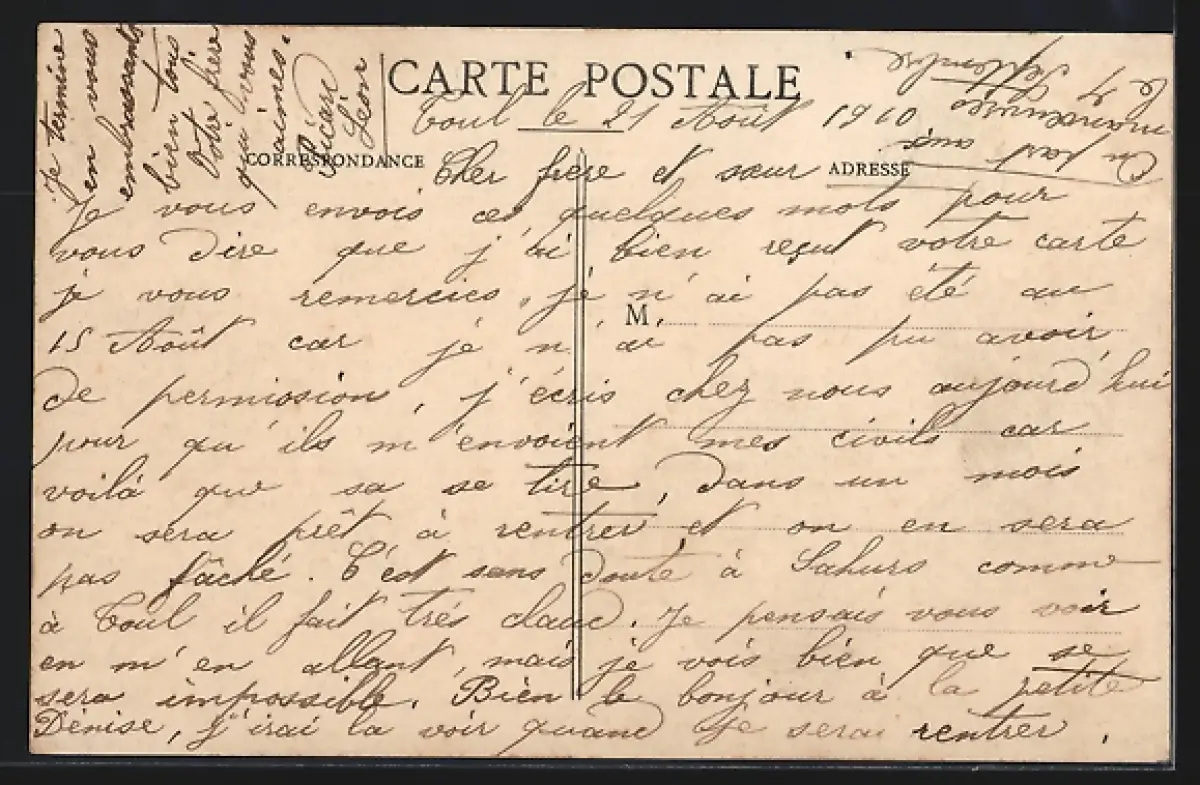 CARTE POSTALE
Toul le 21 Août 1910
CORRESPONDANCE
ADRESSE
Cher frère et sœur
Je vous envois ces quelques mots pour
vous dire que j'ai bien reçut votre carte
je vous remercies, je n'ai pas été au
M.
15 Août car je n'ai pas pu avoir
de permission, j'écris chez nous aujourd'hui
pour qu'ils m'envoient mes civils car
voilà que sa se tire, dans un mois
on sera prêt à rentrer et on en sera
pas fâché. C'est sans doute à Sahurs comme
à Toul il fait très chaud. Je pensais vous voir
en m'en allant, mais je vois bien que se
sera impossible. Bien le bonjour à la petite
Dénise, j'irai la voir quand je serai rentrer.
Je termine
en vous
embrassants
bien tous
Votre frère
qui vous
aimes.
Picard
Léon
On part aux
manœuvres
le 4 Septembre